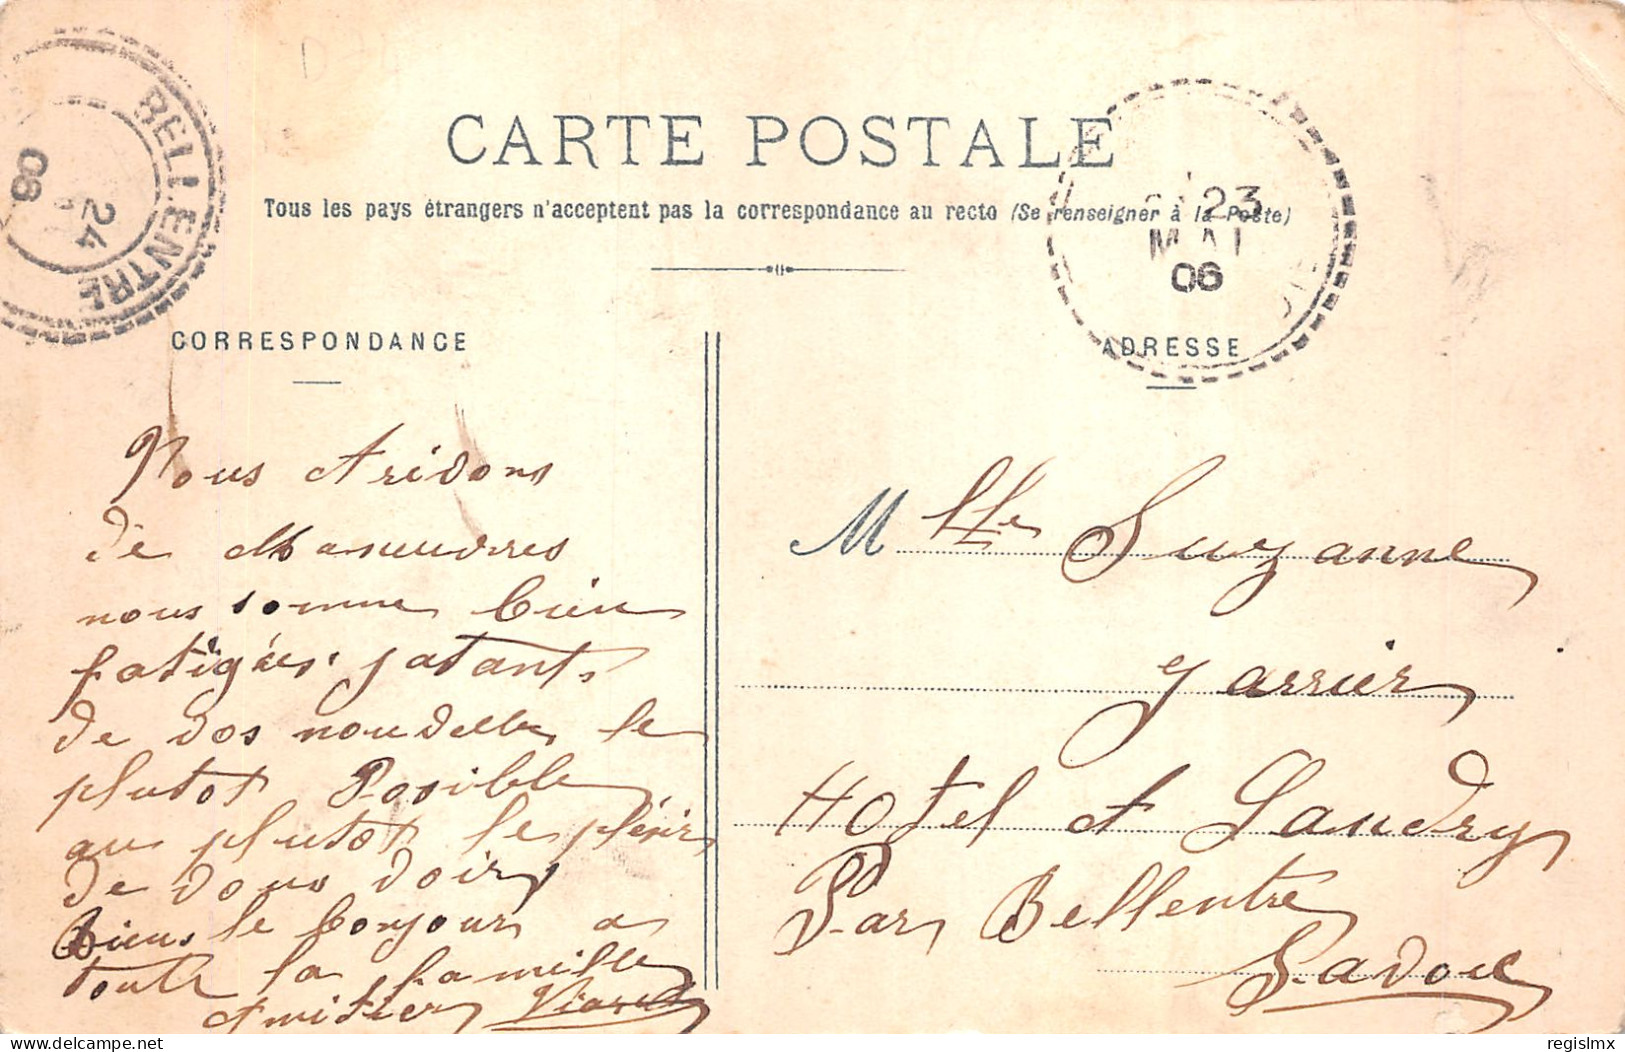 BELLENTRE
24
08
CARTE POSTALE
Tous les pays étrangers n'acceptent pas la correspondance au recto (Se renseigner à la Poste)
23
MAI
06
CORRESPONDANCE
ADRESSE
Nous Arivons
de Manuuvres
nous somme bien
fatigués. jatant
de vos nouvelle le
plutot Posible
au plutot le plésir
de vous voir
bien le bonjour a
toute la famille
Amitier
Mlle Suzanne
Jarrier
Hotel A Landry
Par Bellentre
Savoie
delcampe.net
regislmx